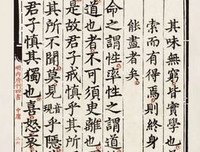 其味無窮皆實學也
索而有得焉則終身
能盡者矣
命之謂性率性之謂道
道也者不可須臾離也
是故君子戒慎乎其
其所不聞莫見音現乎隱
君子慎其獨也喜怒哀